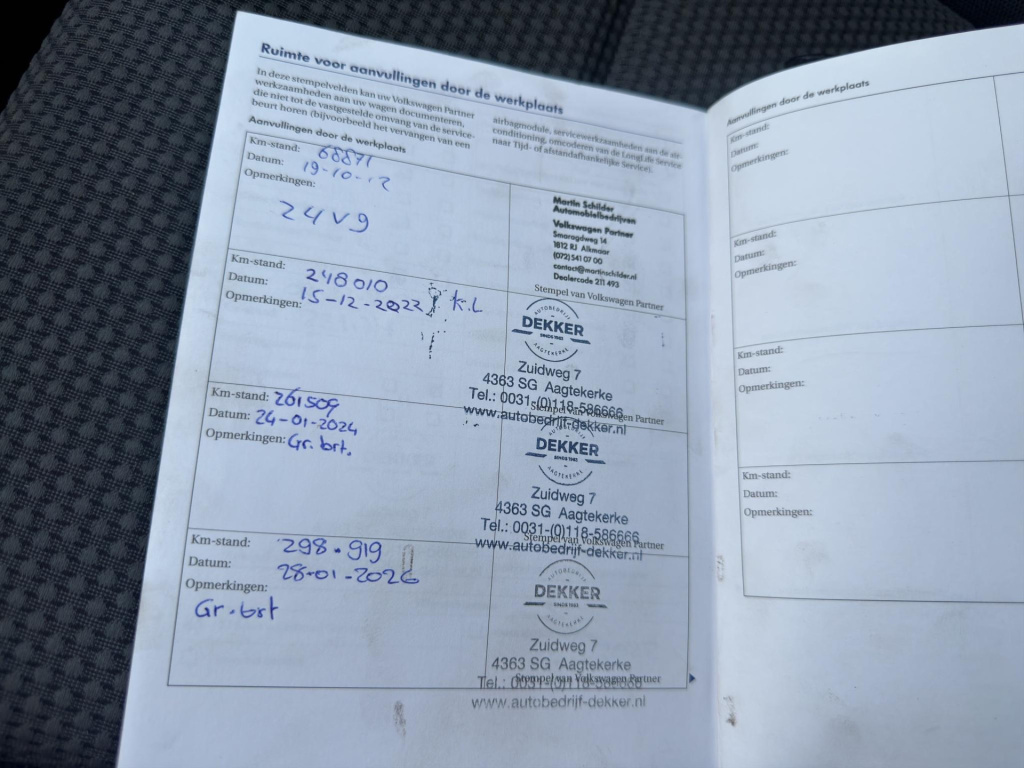 Ruimte voor aanvullingen door de werkplaats
In deze stempelvelden kan uw Volkswagen Partner
werkzaamheden aan uw wagen documenteren,
die niet tot de vastgestelde omvang van de service-
beurt horen (bijvoorbeeld het vervangen van een
airbagmodule, servicewerkzaamheden aan de air-
conditioning, omcoderen van de LongLife Service
naar Tijd- of afstandafhankelijke Service).
Aanvullingen door de werkplaats
Km-stand: 68871
Datum: 19-10-12
Opmerkingen:
24V9
Martin Schilder
Automobielbedrijven
Volkswagen Partner
Smaragdweg 14
1812 RJ Alkmaar
(072) 541 07 00
contact@martinschilder.nl
Dealercode 211 493
Stempel van Volkswagen Partner
Km-stand: 248010
Datum: 15-12-2022 K.L
Opmerkingen:
AUTOBEDRIJF
DEKKER
SINDS 1982
AAGTEKERKE
Zuidweg 7
4363 SG Aagtekerke
Tel.: 0031-(0)118-586666
Stempel van Volkswagen Partner
www.autobedrijf-dekker.nl
Km-stand: 261509
Datum: 24-01-2024
Opmerkingen: Gr. brt.
DEKKER
SINDS 1982
AAGTEKERKE
Zuidweg 7
4363 SG Aagtekerke
Tel.: 0031-(0)118-586666
Stempel van Volkswagen Partner
www.autobedrijf-dekker.nl
Km-stand: 298.919
Datum: 28-01-2026
Opmerkingen:
Gr. brt
AUTOBEDRIJF
DEKKER
SINDS 1982
AAGTEKERKE
Zuidweg 7
4363 SG Aagtekerke
Stempel van Volkswagen Partner
Tel.: 0031-(0)118-586666
www.autobedrijf-dekker.nl
Aanvullingen door de werkplaats
Km-stand:
Datum:
Opmerkingen:
Km-stand:
Datum:
Opmerkingen:
Km-stand:
Datum:
Opmerkingen:
Km-stand:
Datum:
Opmerkingen: